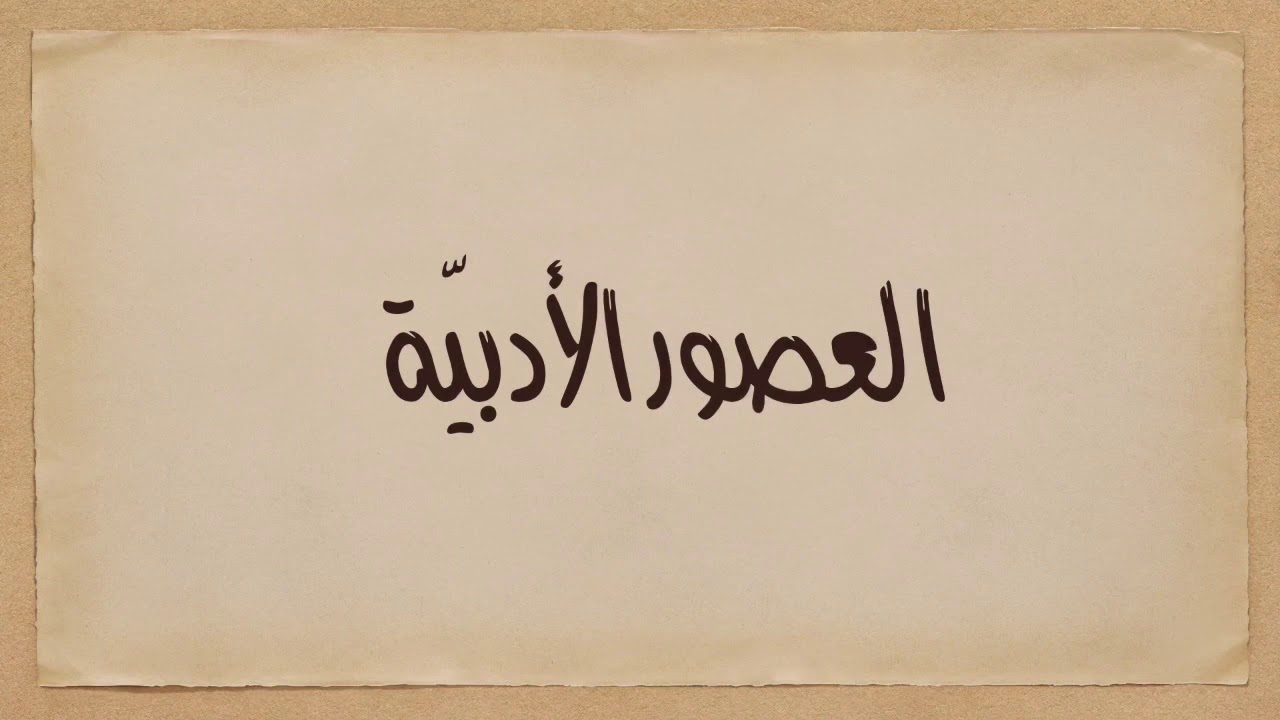 العصور الأدبيّة